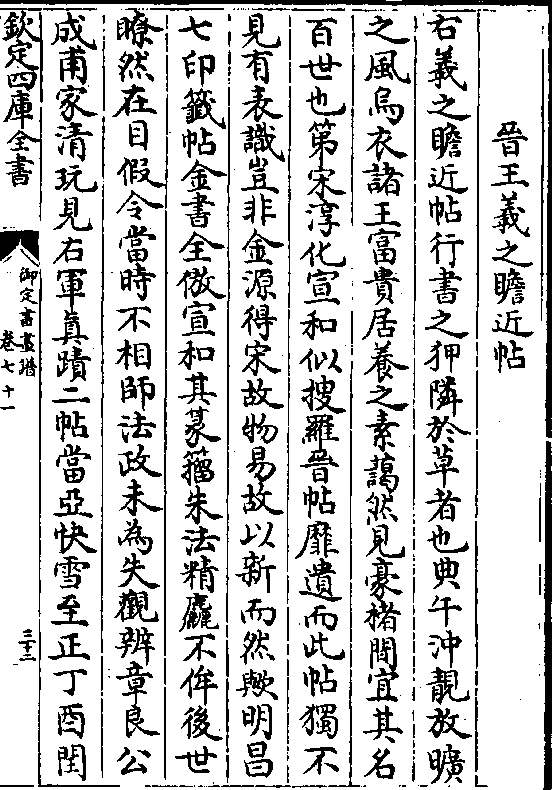 晉王羲之瞻近帖
右羲之瞻近帖行書之狎隣於草者也典午沖靚放曠
之風烏衣諸王富貴居養之素藹然見豪楮間宜其名
百世也第宋淳化宣和似搜羅晉帖靡遺而此帖獨不
見有表識豈非金源得宋故物易故以新而然歟明昌
七印籤帖金書全倣宣和其篆籀朱法精麤不侔後世
瞭然在目假令當時不相師法政未為失觀辨章良公
成甫家清玩見右軍真蹟二帖當亞快雪至正丁酉閏
欽定四庫全書
御定書畫譜
卷七十一
三十二